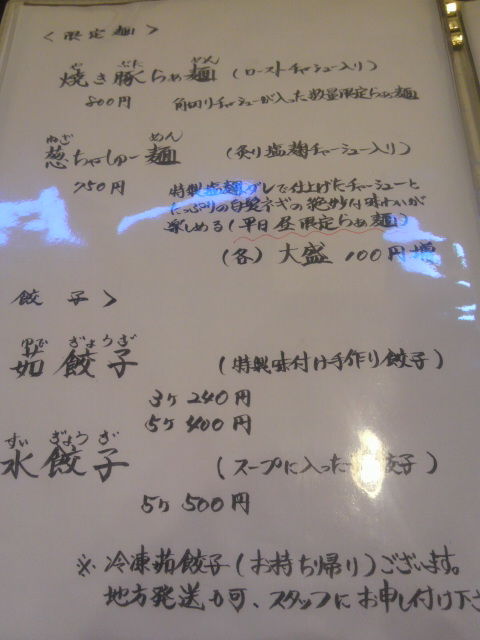 <限定麺>
や ぶた めん
焼き豚らぁ麺 (ローストチャーシュー入り)
800円 角切りチャーシューが入った数量限定らぁ麺
ねぎ めん
葱ちゃしゅー麺 (炙り塩麹チャーシュー入り)
750円 特製塩麹ダレで仕上げたチャーシューと
たっぷりの白髪ネギの絶妙な味わいが
楽しめる(平日昼限定らぁ麺)
(各) 大盛 100円増
餃子>
ゆで ぎょうざ
茹餃子 (特製味付け手作り餃子)
3ケ 240円
5ケ 400円
すい ぎょうざ
水餃子 (スープに入った 餃子)
5ケ 500円
※冷凍茹餃子(お持ち帰り)ございます。
地方発送も可、スタッフにお申し付け下さ